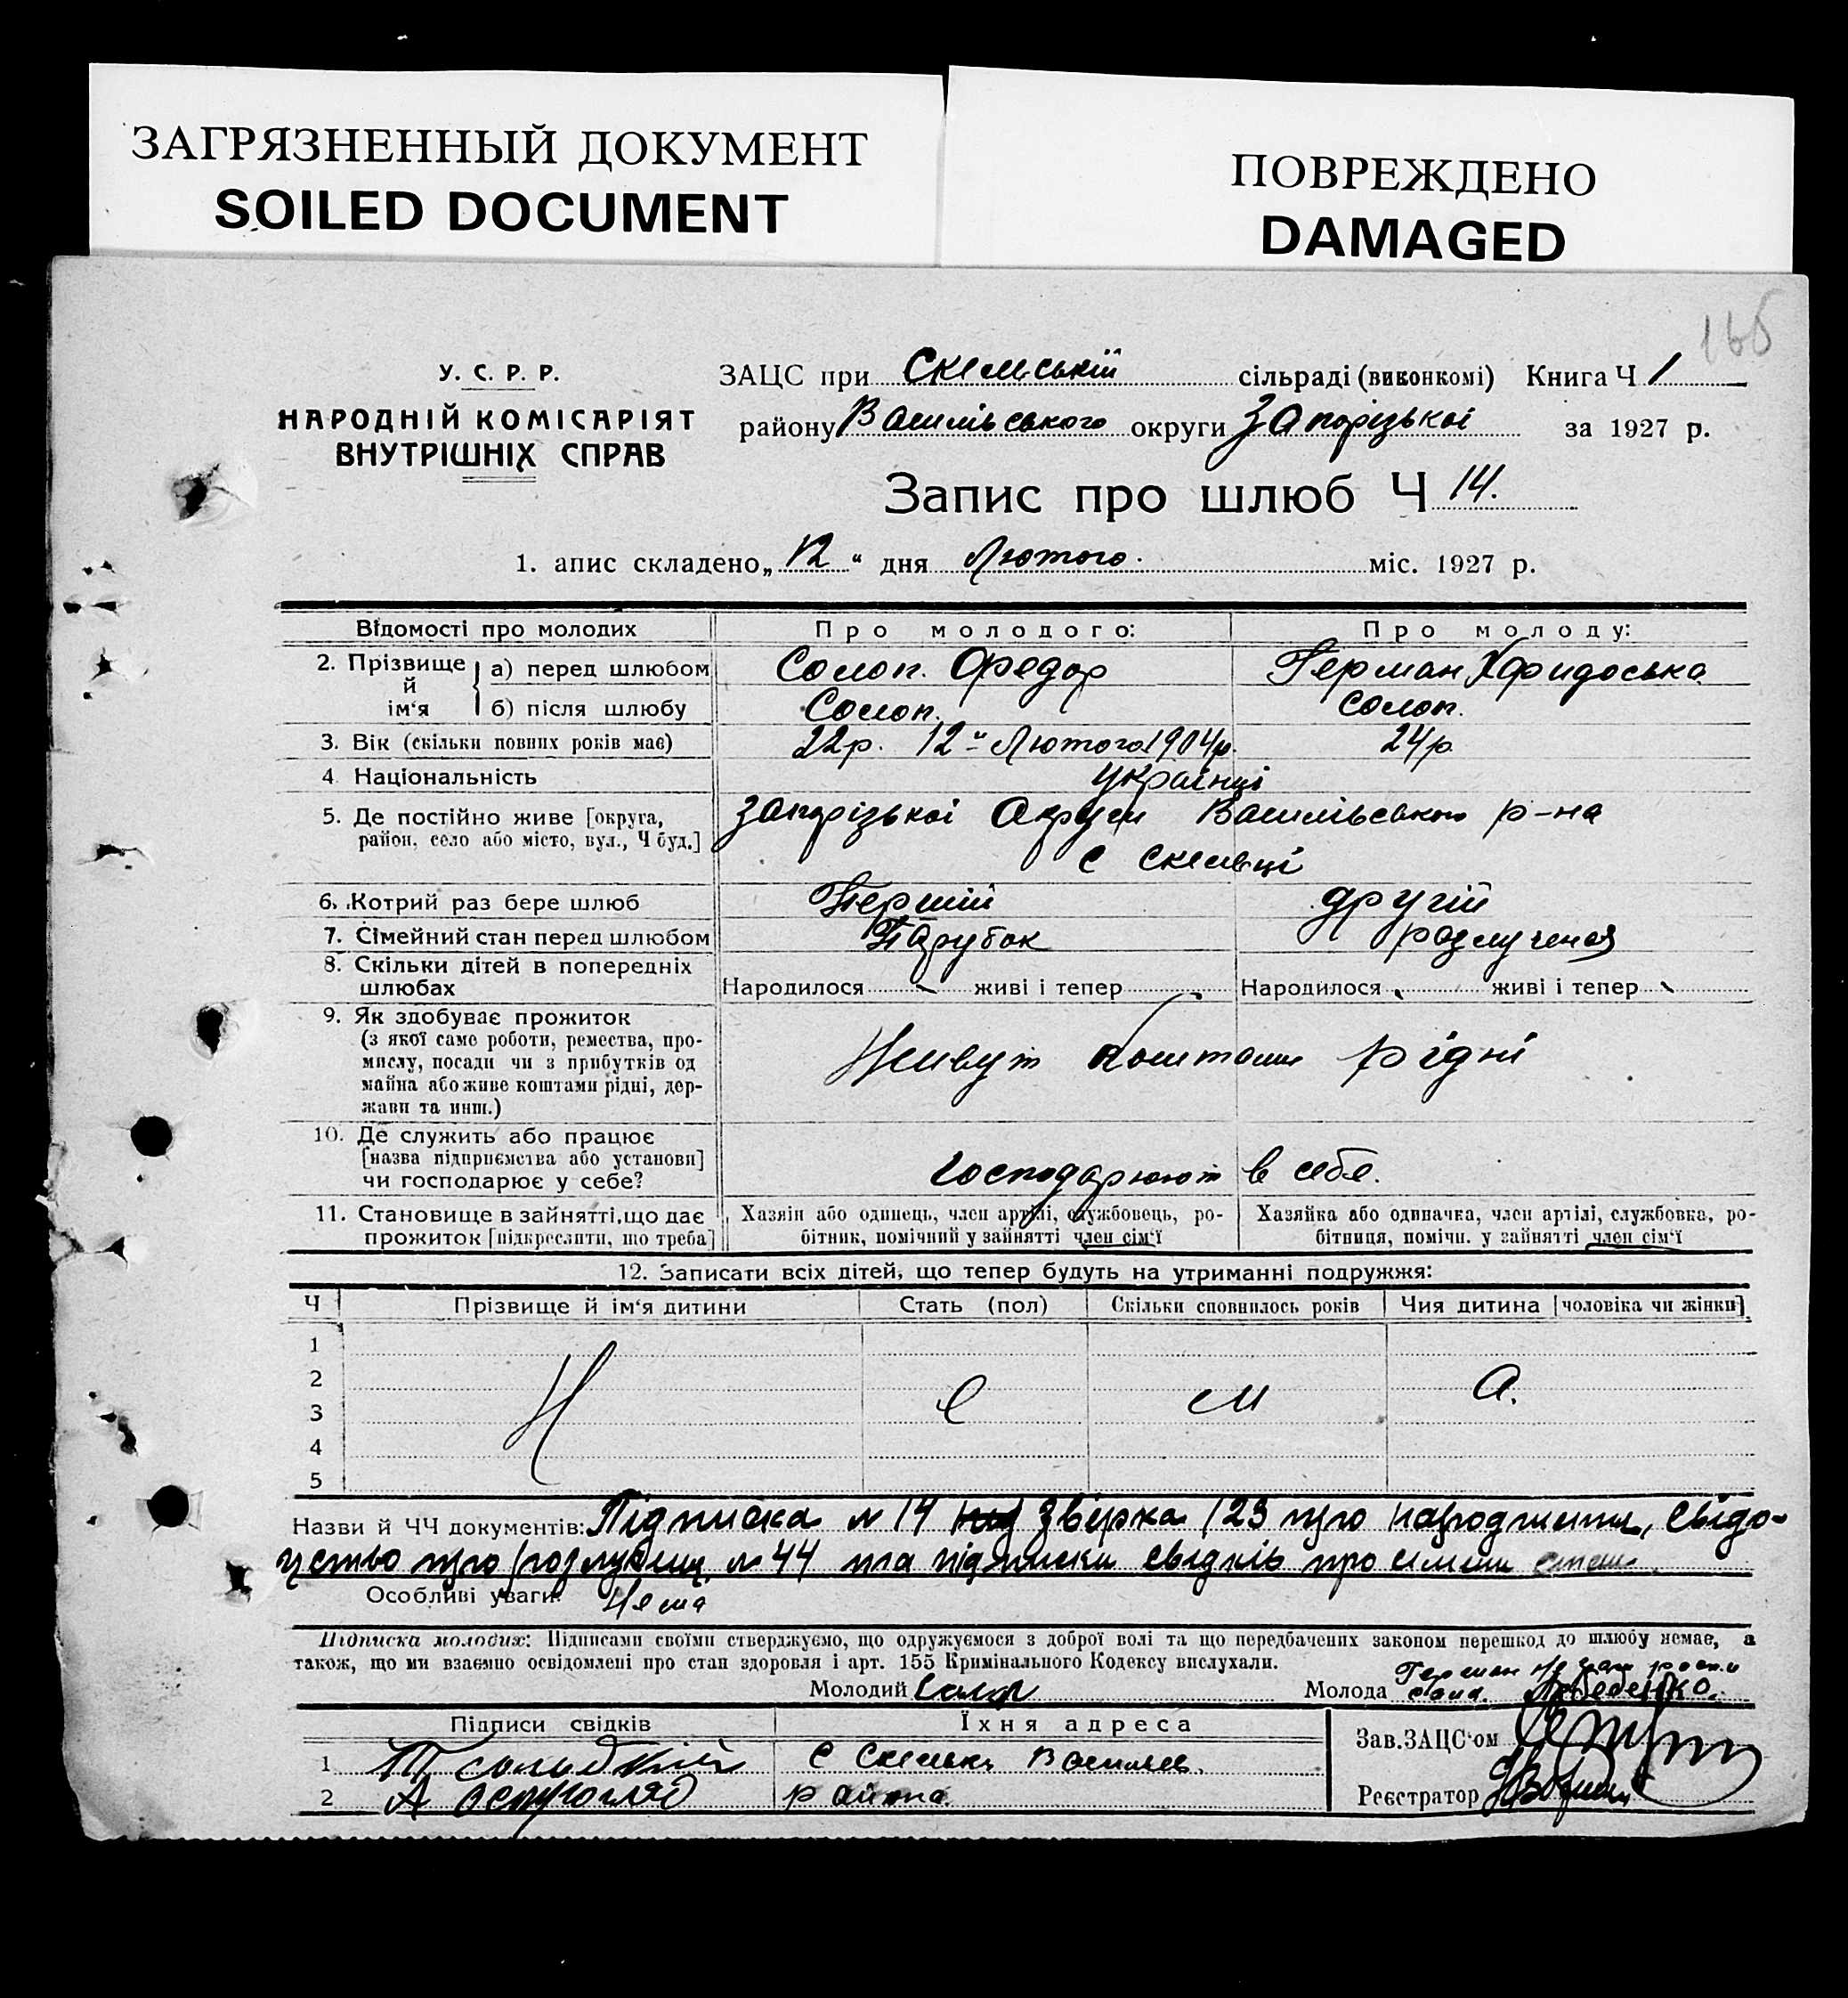 ЗАГРЯЗНЕННЫЙ ДОКУМЕНТ
SOILED DOCUMENT
ПОВРЕЖДЕНО
DAMAGED
166
У. С. Р. Р.
НАРОДНІЙ КОМІСАРІЯТ
ВНУТРІШНІХ СПРАВ
ЗАЦС при Скельській сільраді (виконкомі) Книга Ч 1
району Василівського округи Запорізької за 1927 р.
Запис про шлюб Ч 14.
1. апис складено „12“ дня Лютого. міс. 1927 р.
Відомості про молодих Про молодого: Про молоду:
2. Прізвище й ім‘я а) перед шлюбом Солоп. Федор Герман
б) після шлюбу Солоп. Солоп.
3. Вік (скільки повних років має) 22р. 12" Лютого 1904р. 24р
4. Національність Українці
5. Де постійно живе [округа, Запорізької Округи Василівського р-на
район, село або місто, вул., Ч буд.]
с Скельці
6. Котрий раз бере шлюб Перший другий
7. Сімейний стан перед шлюбом Парубок розлученая
8. Скільки дітей в попередніх
шлюбах Народилося - живі і тепер - Народилося - живі і тепер -
9. Як здобуває прожиток
(з якої саме роботи, ремества, про-
мислу, посади чи з прибутків од Живут коштами рідні
майна або живе коштами рідні, дер-
жави та инш.)
10. Де служить або працює
[назва підприємства або установи]
чи господарює у себе? господарюют в себе.
11. Становище в зайнятті, що дає Хазяїн або одинець, член артілі, службовець, ро- Хазяйка або одиначка, член артілі, службовка, ро-
прожиток [підкреслити, що треба] бітник, помічний у зайнятті член сім‘ї бітниця, помічн. у зайнятті член сім‘ї
12. Записати всіх дітей, що тепер будуть на утриманні подружжя:
Ч Прізвище й ім‘я дитини Стать (пол) Скільки сповнилось років Чия дитина [чоловіка чи жінки]
1
2
Н е м а.
3
4
5
Назви й ЧЧ документів: Підписка № 14 звірка 123 про народження, свідо-
цтво про № 44 та підписки свідків про
Особливі уваги: Нема
Підписка молодих: Підписами своїми стверджуємо, що одружуємося з доброї волі та що передбачених законом перешкод до шлюбу немає, а
також, що ми взаємно освідомлені про стан здоровля і арт. 155 Кримінального Кодексу вислухали.
Молодий Молода Герман
Лебеденко.
Підписи свідків Їхня адреса Зав. ЗАЦС‘ом
1 с Скельки Василев.
2 А района. Реєстратор